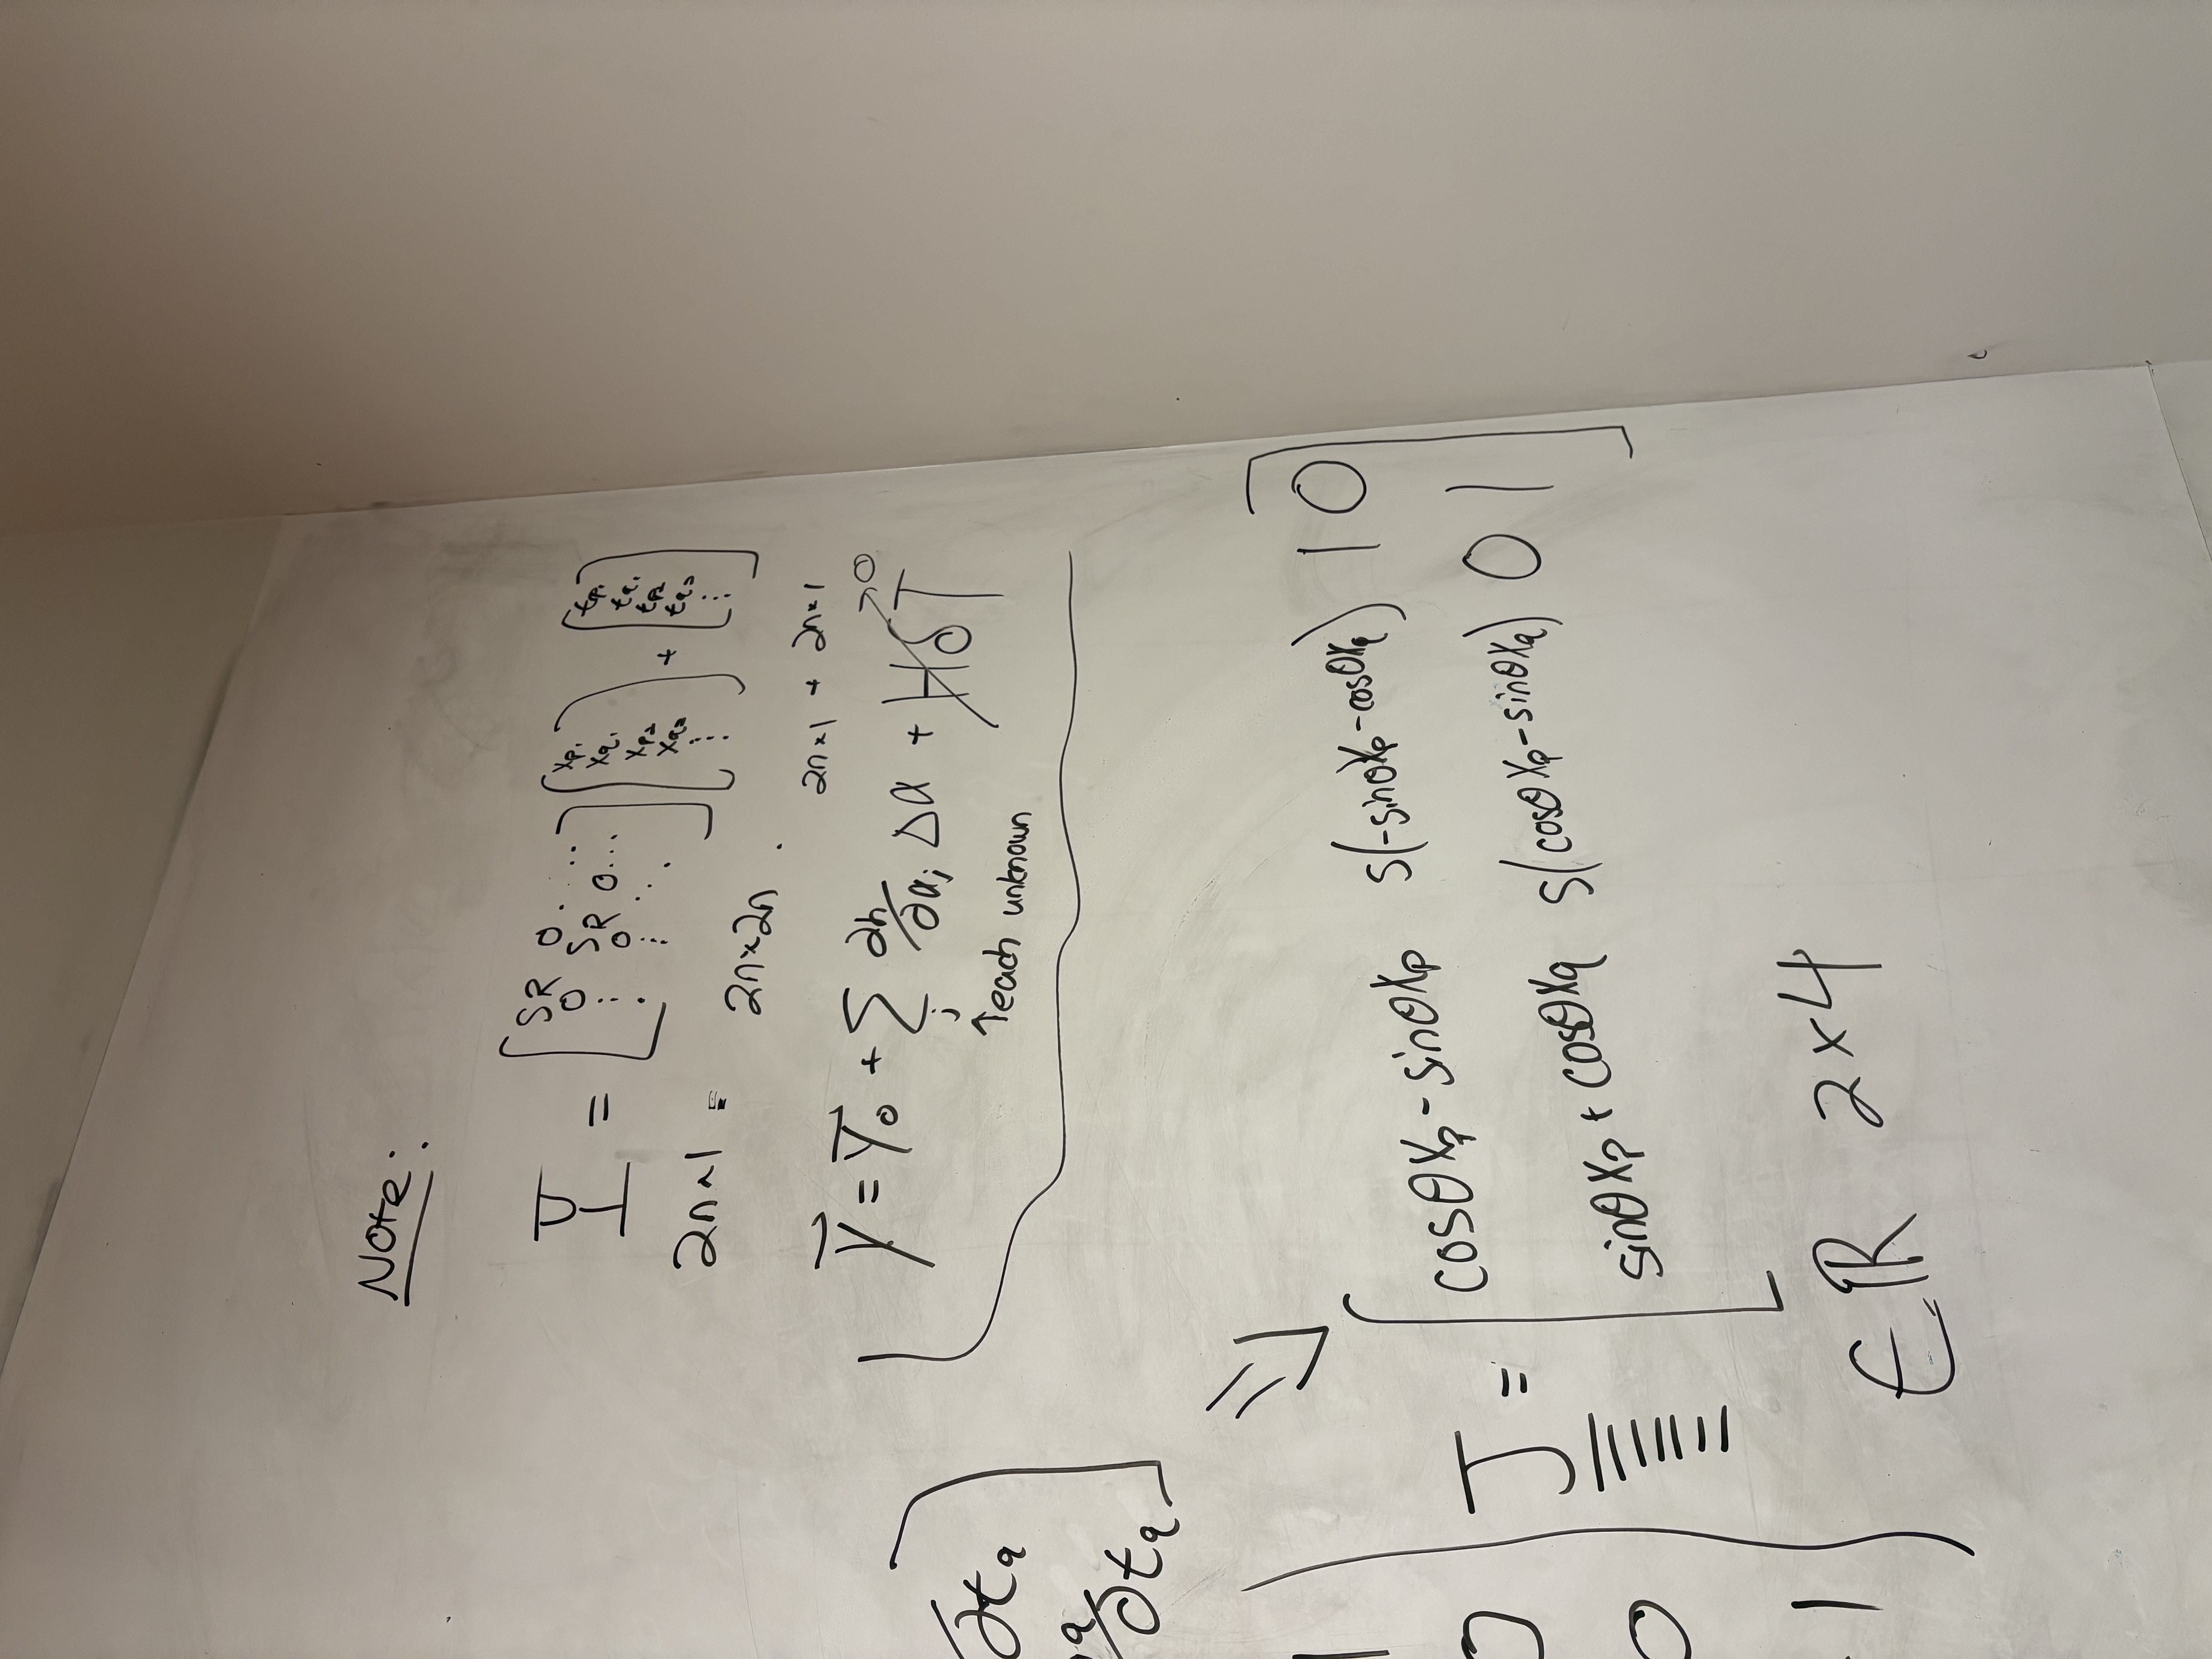 Note:
Y = [ SR 0 . . . . ] [ xp1 ] + [ tp1 ]
0 SR 0 ... xq1 tq1
⋮ 0 ⋱ xp2 tp2
⋮ xq2 tq2
⋮ ⋮
2n×1 = 2n×2n · 2n×1 + 2n×1
Y⃗ = Y⃗₀ + Σ_j ∂h/∂a_j Δa + HOT → 0
↑ each unknown
∂t_q
q/∂t_q
1
0
0
1
J = [ cosθX_p - sinθX_p s(-sinθX_p - cosθX_q) 1 0
sinθX_p + cosθX_q s(cosθX_p - sinθX_q) 0 1 ]
∈ ℝ 2×4